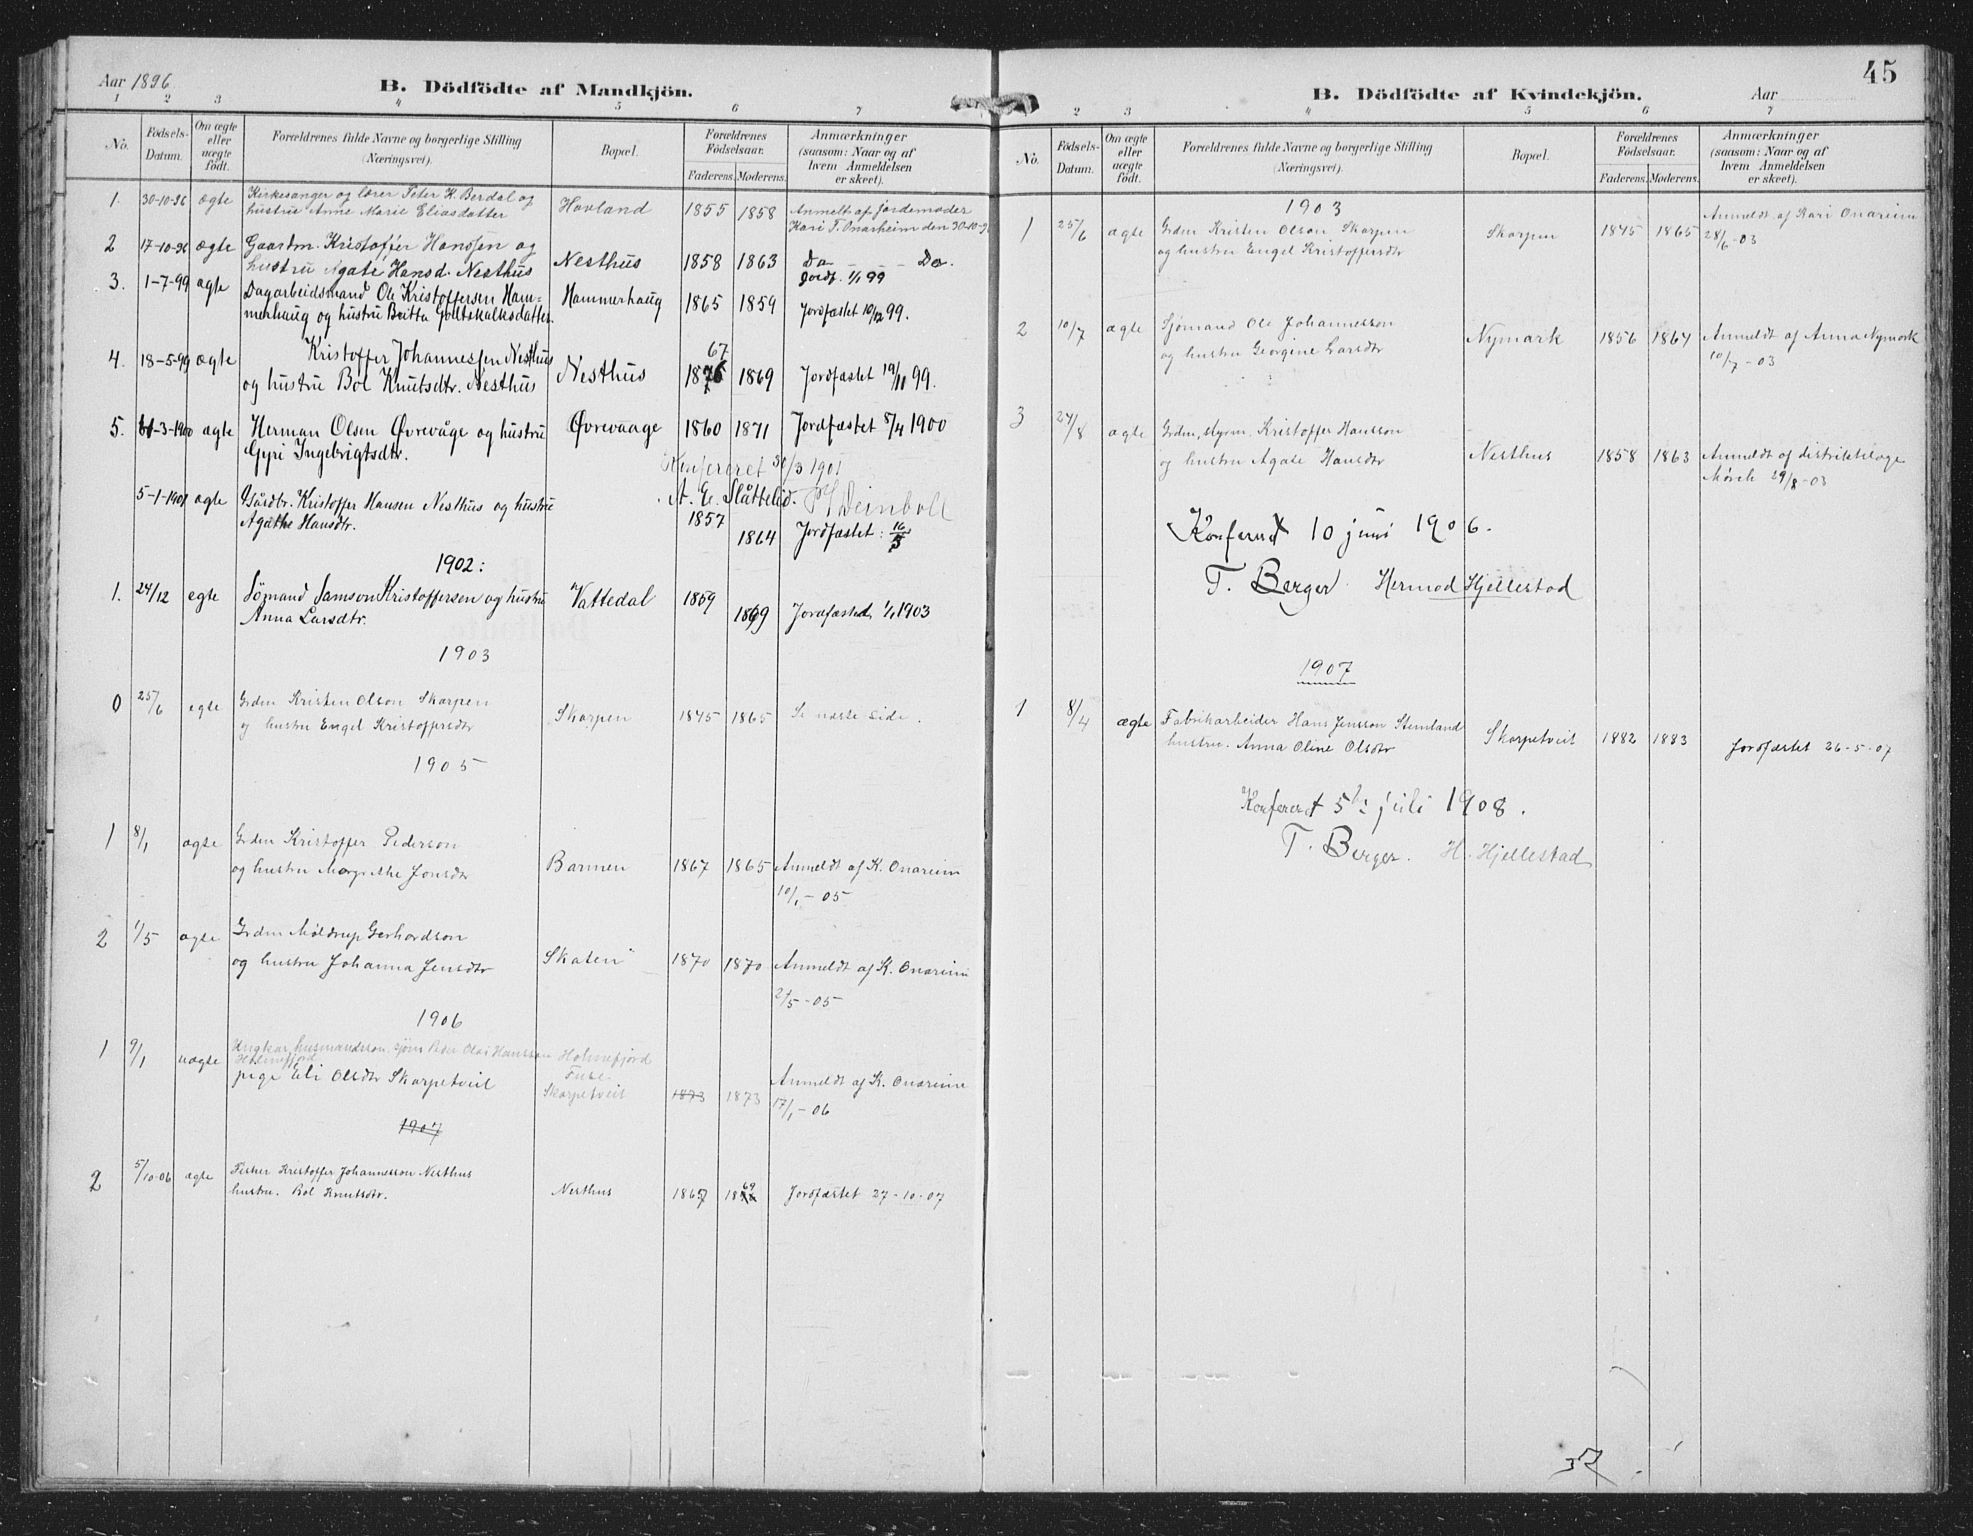 Aar 1896
B. Dödfödte af Mandkjön.
1 2 3 4 5 6 7
No.
Födsels-Datum.
Om ægte eller uægte født.
Forældrenes fulde Navne og borgerlige Stilling (Næringsvei).
Bopæl.
Forældrenes Födselsaar.
Faderens. Moderens.
Anmærkninger (saasom: Naar og af hvem Anmeldelsen er skeet).
1. 30-10-96 ægte Kirkesanger og lærer Peter K. Berdal og Hovland 1855 1858 Anmelt af Jordemoder
hustru Anne Marie Eliasdatter Kari T. Onarheim den 30-10-96
2 17-10-96 ægte Gaardm. Kristoffer Hanssen og Nesthus 1858 1863 Do - - Do.
hustru Agate Hansd. Nesthus Jordf. 1/1 99
3. 1-7-99 ægte Dagarbeidsmand Ole Kristoffersen Ham= Hammerhaug 1865 1859 Jordfæstet 10/12 99.
merhaug og hustru Britta Gottskalksdatter.
4. 18-5-99 ægte Kristoffer Johannessen Nesthus Nesthus 67 1869 Jordfæstet 19/11 99.
og hustru Bol Knutsdtr. Nesthus
5. -3-1900 ægte Herman Olsen Øvrevåge og hustru Øvrevaage 1860 1871 Jordfæstet 8/4 1900
Gyri Ingebrigtsdtr.
Konfereret 30/3 1901
A. E. Slåttelid. Deinboll
5-1-1901 ægte Gårdbr. Kristoffer Hansen Nesthus og hustru 1857 1864 Jordfæstet: 16/5
Agathe Hansdtr.
1902:
1. 24/12 egte Sömand Samson Kristoffersen og hustru Vattedal 1859 1869 Jordfæsted 1/1 1903
Anna Larsdtr.
1903
0 25/6 egte Grdm Kristen Olson Skorpen Skorpen 1845 1865 Se næste side.
og hustru Engel Kristoffersdtr
1905
1 8/1 ægte Grdm Kristoffer Pederson Barmen 1867 1865 Anmeldt af K. Onareim
og hustru Margrethe Jonsdtr 10/1-05
2 1/5 ægte Grdm Möldrup Gerhardson Skaten 1870 1870 Anmeldt af K. Onareim
og hustru Johanna Jensdtr 2/5-05
1906
1 9/1 uægte Ungkar, husmandsson, sjöm Peder Olai Hansson Holmefjord
Holmefjord Fuse
pige Eli Olsdtr Skorpetveit Skorpetveit 1873 1873 Anmeldt af K. Onareim
17/1-06
1907
2 5/10-06 ægte Fisker Kristoffer Johannesson Nesthus Nesthus 1867 69 Jordfæstet 27-10-07
hustru. Bol Knutsdtr.
45
B. Dödfödte af Kvindekjön.
Aar
2 3 4 5 6 7
No.
Födsels-Datum.
Om ægte eller uægte født.
Forældrenes fulde Navne og borgerlige Stilling (Næringsvei).
Bopæl.
Forældrenes Födselsaar.
Faderens. Moderens.
Anmærkninger (saasom: Naar og af hvem Anmeldelsen er skeet).
1903
1 25/6 ægte Grdm Kristen Olson Skorpen Skorpen 1845 1865 Anmeldt af Kari Onareim
og hustru Engel Kristoffersdtr 28/6-03
2 10/7 ægte Sjömand Ole Johannesson Nymark 1856 1864 Anmeldt af Anna Nymark
og hustru Georgine Larsdtr 10/7-03
3 24/8 ægte Grdm, styrm. Kristoffer Hansson Nesthus 1858 1863 Anmeldt af distriktslæge
og hustru Agate Hansdtr Mørch 29/8-03
Konfereret 10 juni 1906.
T. Berger. Hermod Hjellestad
1907
1 8/4 ægte Fabrikarbeider Hans Jensson Stemland Skorpetveit 1882 1883 Jordfæstet 26-5-07
hustru. Anna Oline Olsdtr
Konfereret 5te juli 1908.
T. Berger. H. Hjellestad